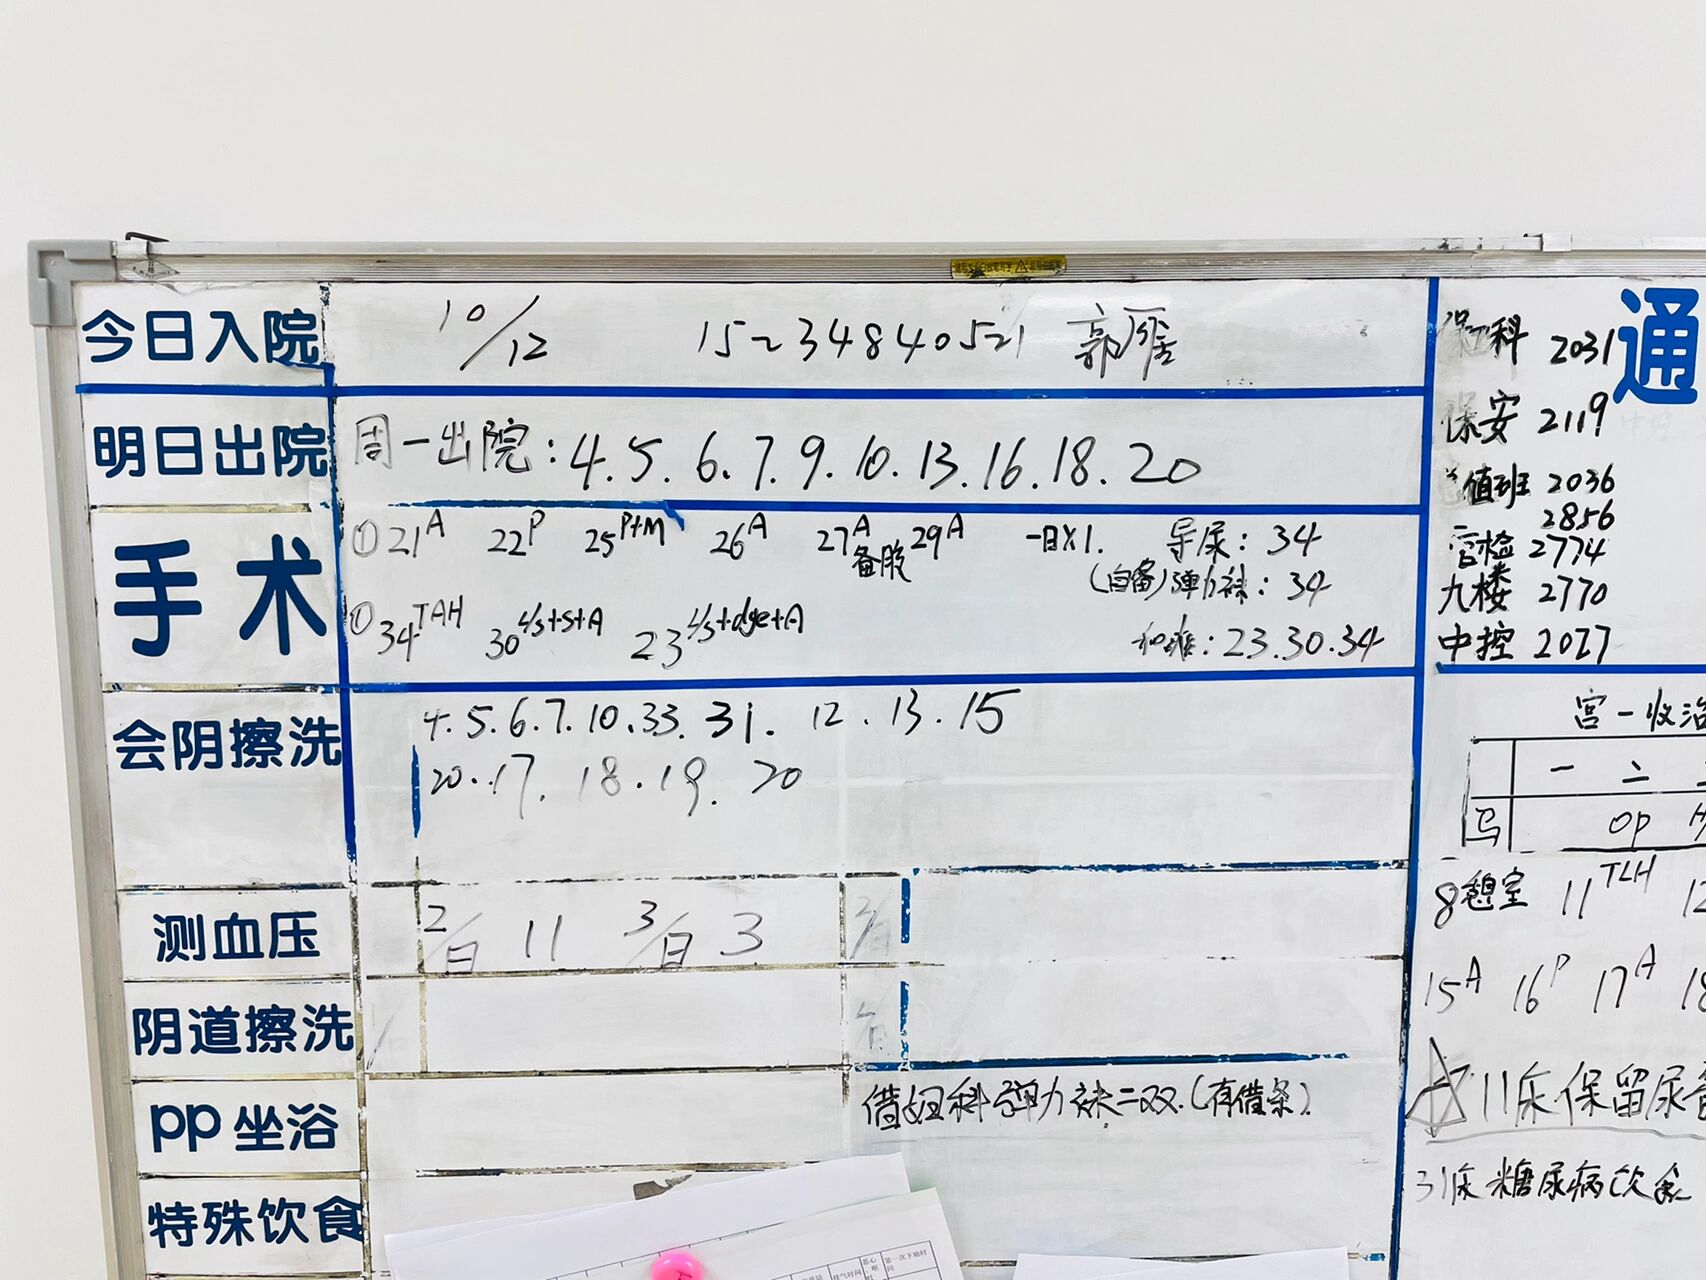 今日入院 10/12 15234840521 郭
明日出院 周一出院:4.5.6.7.9.10.13.16.18.20
手术
① 21A 22P 25P+M 26A 27A 29A 一日X1. 导尿:34
备胶 (自备)弹力袜:34
① 34TAH 30 4/s+s+A 23 4/s+dge+A :23.30.34
会阴擦洗 4.5.6.7.10.33.31. 12.13.15
20.17. 18.19. 20
测血压 2/日 11 3/日 3
阴道擦洗
PP坐浴 借妇科弹力袜二双.(有借条).
特殊饮食
通
科 2031
保安 2119
值班 2036
2856
宫检 2774
九楼 2770
中控 2027
宫一收治
一 二
马 OP
8憩室 11TLH
15A 16P 17A 18
11床保留尿
31床糖尿病饮食
排气时间
第一次下地时
间